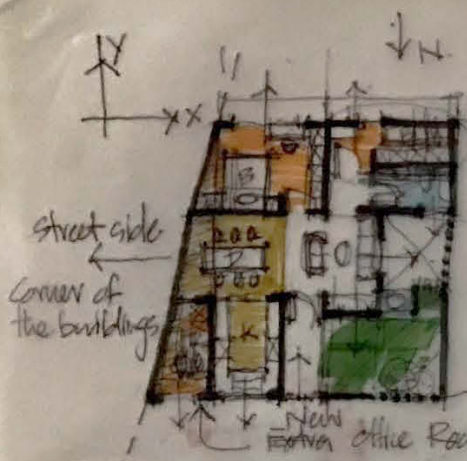 Y
N
X X
B
street side
D
corner of
the buildings
K
New
Extra office Roo